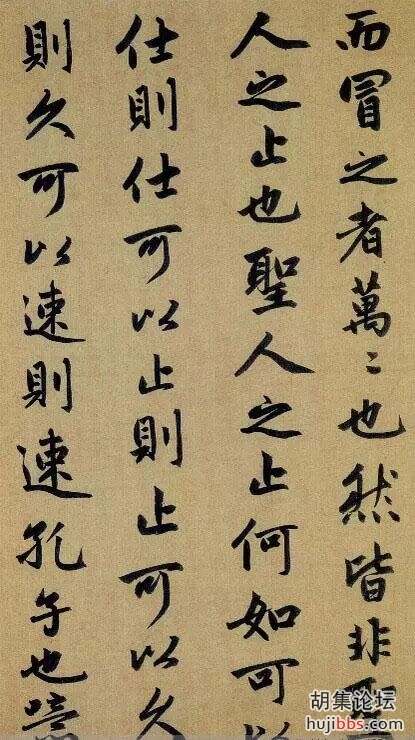 而冒之者萬〻也然皆非聖
人之止也聖人之止何如可以
仕則仕可以止則止可以久
則久可以速則速孔子也噫
胡集论坛
hujibbs.com